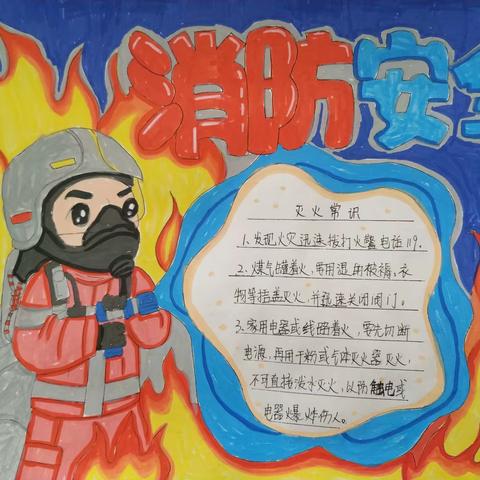 消防安全
灭火常识
1.发现火灾迅速拨打火警电话119。
2.煤气罐着火,要用湿的被褥,衣
物等捂盖灭火,并迅速关闭阀门。
3.家用电器或线路着火,要先切断
电源,再用干粉或气体灭火器灭火,
不可直接泼水灭火,以防触电或
电器爆炸伤人。